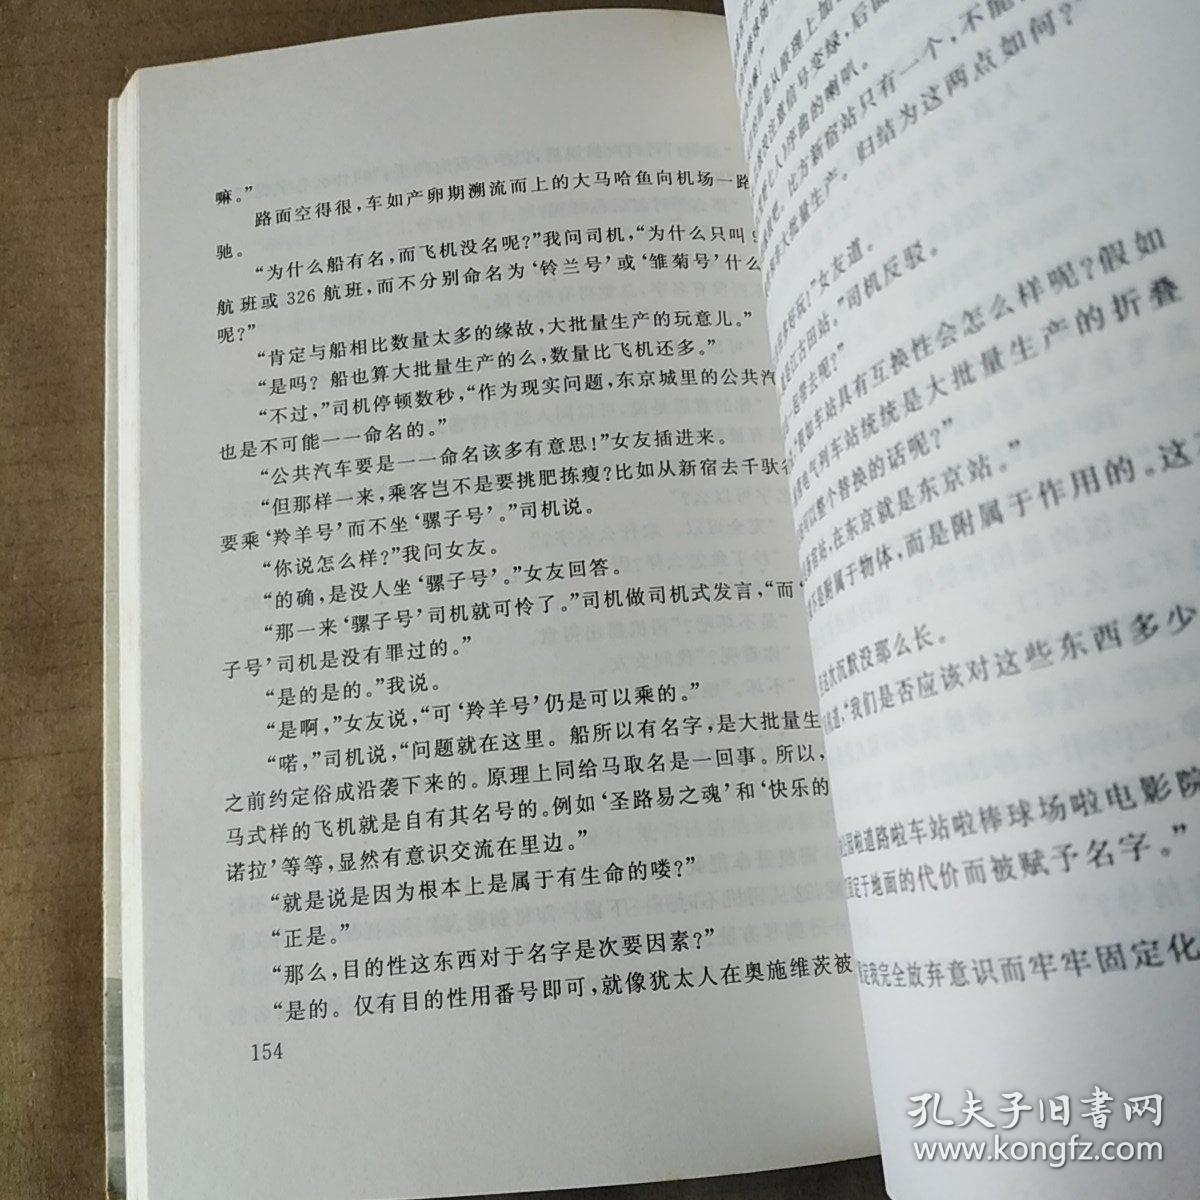 嘛。”
路面空得很，车如产卵期溯流而上的大马哈鱼向机场一路
驰。
“为什么船有名，而飞机没名呢？”我问司机，“为什么只叫
航班或 326 航班，而不分别命名为‘铃兰号’或‘雏菊号’什么
呢？”
“肯定与船相比数量太多的缘故，大批量生产的玩意儿。”
“是吗？船也算大批量生产的么，数量比飞机还多。”
“不过，”司机停顿数秒，“作为现实问题，东京城里的公共汽
也是不可能一一命名的。”
“公共汽车要是一一命名该多有意思！”女友插进来。
“但那样一来，乘客岂不是要挑肥拣瘦？比如从新宿去千驮
要乘‘羚羊号’而不坐‘骡子号’。”司机说。
“你说怎么样？”我问女友。
“的确，是没人坐‘骡子号’。”女友回答。
“那一来‘骡子号’司机就可怜了。”司机做司机式发言，“而‘
子号’司机是没有罪过的。”
“是的是的。”我说。
“是啊，”女友说，“可‘羚羊号’仍是可以乘的。”
“喏，”司机说，“问题就在这里。船所以有名字，是大批量生
之前约定俗成沿袭下来的。原理上同给马取名是一回事。所以，
马式样的飞机就是自有其名号的。例如‘圣路易之魂’和‘快乐的
诺拉’等等，显然有意识交流在里边。”
“就是说是因为根本上是属于有生命的喽？”
“正是。”
“那么，目的性这东西对于名字是次要因素？”
“是的。仅有目的性用番号即可，就像犹太人在奥施维茨被
154
是从原理上加
没注意信号变绿，后面
七人》序曲的喇叭。
吧。比方新宿站只有一个，不能
大批量生产。归结为这两点如何？”
好玩！”女友道。
是江古田站。”司机反驳。
起带去呢？”
“假如车站具有互换性会怎么样呢？假如
电气列车站统统是大批量生产的折叠
可以整个替换的话呢？”
新宿站，在东京就是东京站。”
不是附属于物体，而是附属于作用的。这
这次沉默没那么长。
道，“我们是否应该对这些东西多少
公园啦道路啦车站啦棒球场啦电影院
固定于地面的代价而被赋予名字。”
假定我完全放弃意识而牢牢固定化
孔夫子旧书网
www.kongfz.com